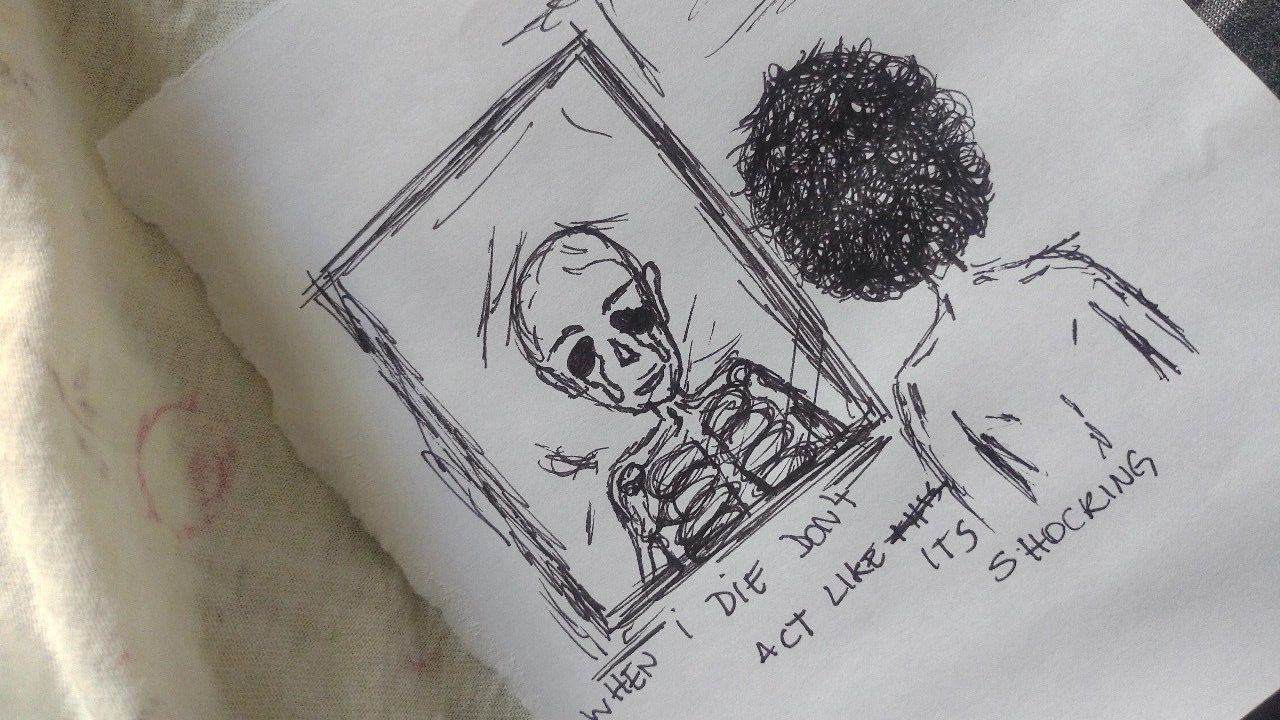 WHEN i DIE DONT
ACT LIKE ITS
SHOCKING